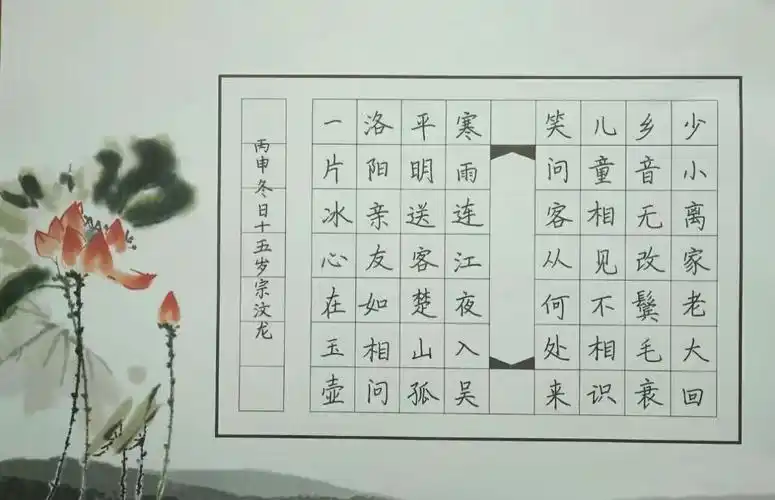 少小离家老大回
乡音无改鬓毛衰
儿童相见不相识
笑问客从何处来
寒雨连江夜入吴
平明送客楚山孤
洛阳亲友如相问
一片冰心在玉壶
丙申冬日十五岁宗汶龙